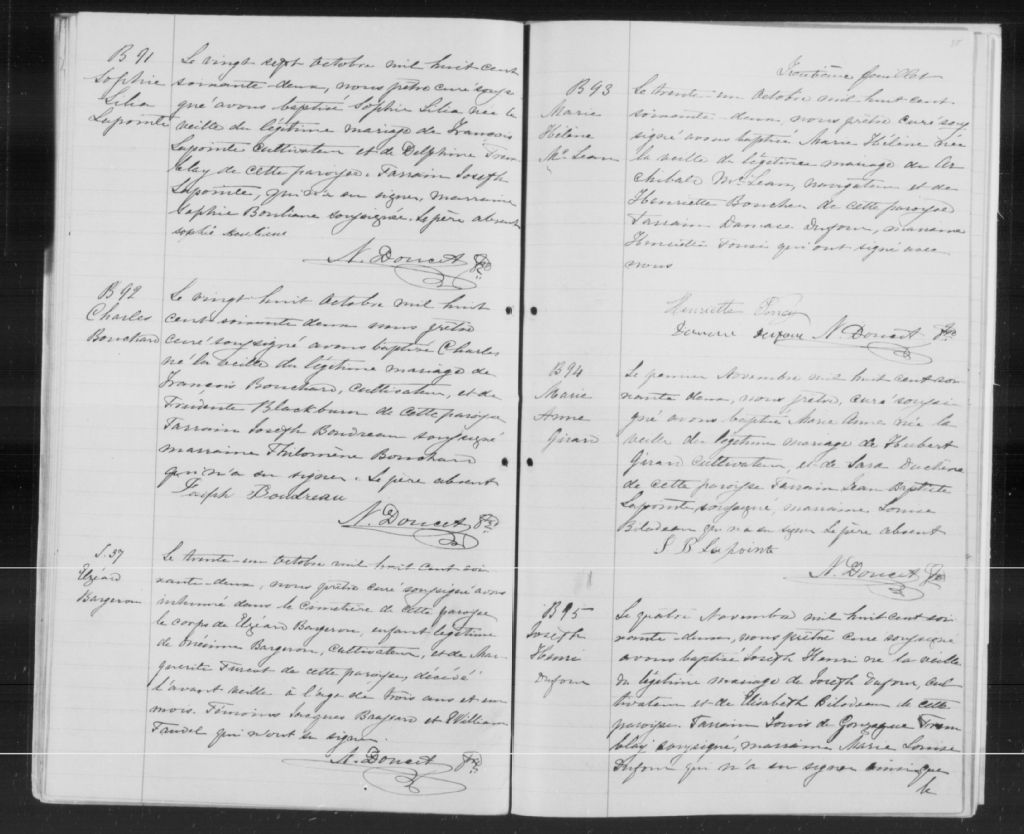 B 91
Sophie
Lilia
Lapointe
Le vingt sept Octobre mil huit cent
soixante-deux, nous prêtre curé sous-
igné avons baptisé Sophie Lilia née la
veille du légitime mariage de François
Lapointe Cultivateur et de Delphine Trem
blay de cette paroisse. Parrain Joseph
Lapointe, qui n'a su signer, marraine
Sophie Bouliane soussignée. Le père absent
Sophie Bouliane
N. Doucet Ptre
B 92
Charles
Bouchard
Le vingt huit Octobre mil huit
cent soixante deux nous prêtre
curé soussigné avons baptisé Charles
né la veille du légitime mariage de
François Bouchard, Cultivateur, et de
Blackburn de cette paroisse
Parrain Joseph Boudreau soussigné
marraine Philomène Bouchard
qui n'a su signer. Le père absent
Joseph Boudreau
N. Doucet Ptre
S. 37
Elzéard
Bergeron
Le trente-un Octobre mil huit cent soi-
xante-deux, nous prêtre curé soussigné avons
inhumé dans le cimetière de cette paroisse
le corps de Elzéard Bergeron, enfant légitime
de Onésime Bergeron, Cultivateur, et de Mar-
guerite de cette paroisse, décédé
l'avant veille à l'age de trois ans et un
mois. Témoins Jacques Brassard et William
qui n'ont su signer.
N. Doucet Ptre
feuillet
B 93
Marie
Hélène
Mc Lean
Le trente-un Octobre mil huit cent
soixante-deux, nous prêtre curé sous
signé avons baptisé Marie Hélène née
la veille du légitime mariage de Ar
chibald Mc Lean, navigateur et de
Henriette Boucher de cette paroisse
Parrain Damase Dufour, marraine
qui ont signé avec
nous
Henriette
Dufour N. Doucet Ptre
B 94
Marie
Anne
Girard
Le premier Novembre mil huit cent soi
xante deux, nous prêtre, curé soussi
gné avons baptisé Marie Anne née la
veille du légitime mariage de Hubert
Girard Cultivateur, et de Sara Duchêne
de cette paroisse Parrain Jean Baptiste
Lapointe soussigné, marraine Louise
Bilodeau qui n'a su signer le père absent
J B Lapointe
N. Doucet Ptre
B 95
Joseph
Henri
Dufour
Le quatre Novembre mil huit cent soi
xante-deux, nous prêtre curé soussigné
avons baptisé Joseph Henri né la veille
du légitime mariage de Joseph Dufour, cul
tivateur et de Elisabeth Bilodeau de cette
paroisse. Parrain Louis de Gonzague Trem
blay soussigné, marraine Marie Louise
Dufour qui n'a su signer ainsi que
le